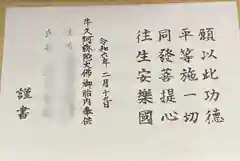 願以此功德
平等施一切
同發菩提心
往生安樂國
令和六年 二月十七日
牛久阿弥陀大佛御胎内奉供
謹書